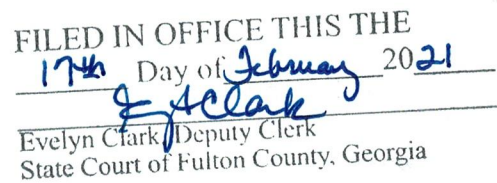 FILED IN OFFICE THIS THE
17th Day of February 2021
Evelyn Clark, Deputy Clerk
State Court of Fulton County, Georgia